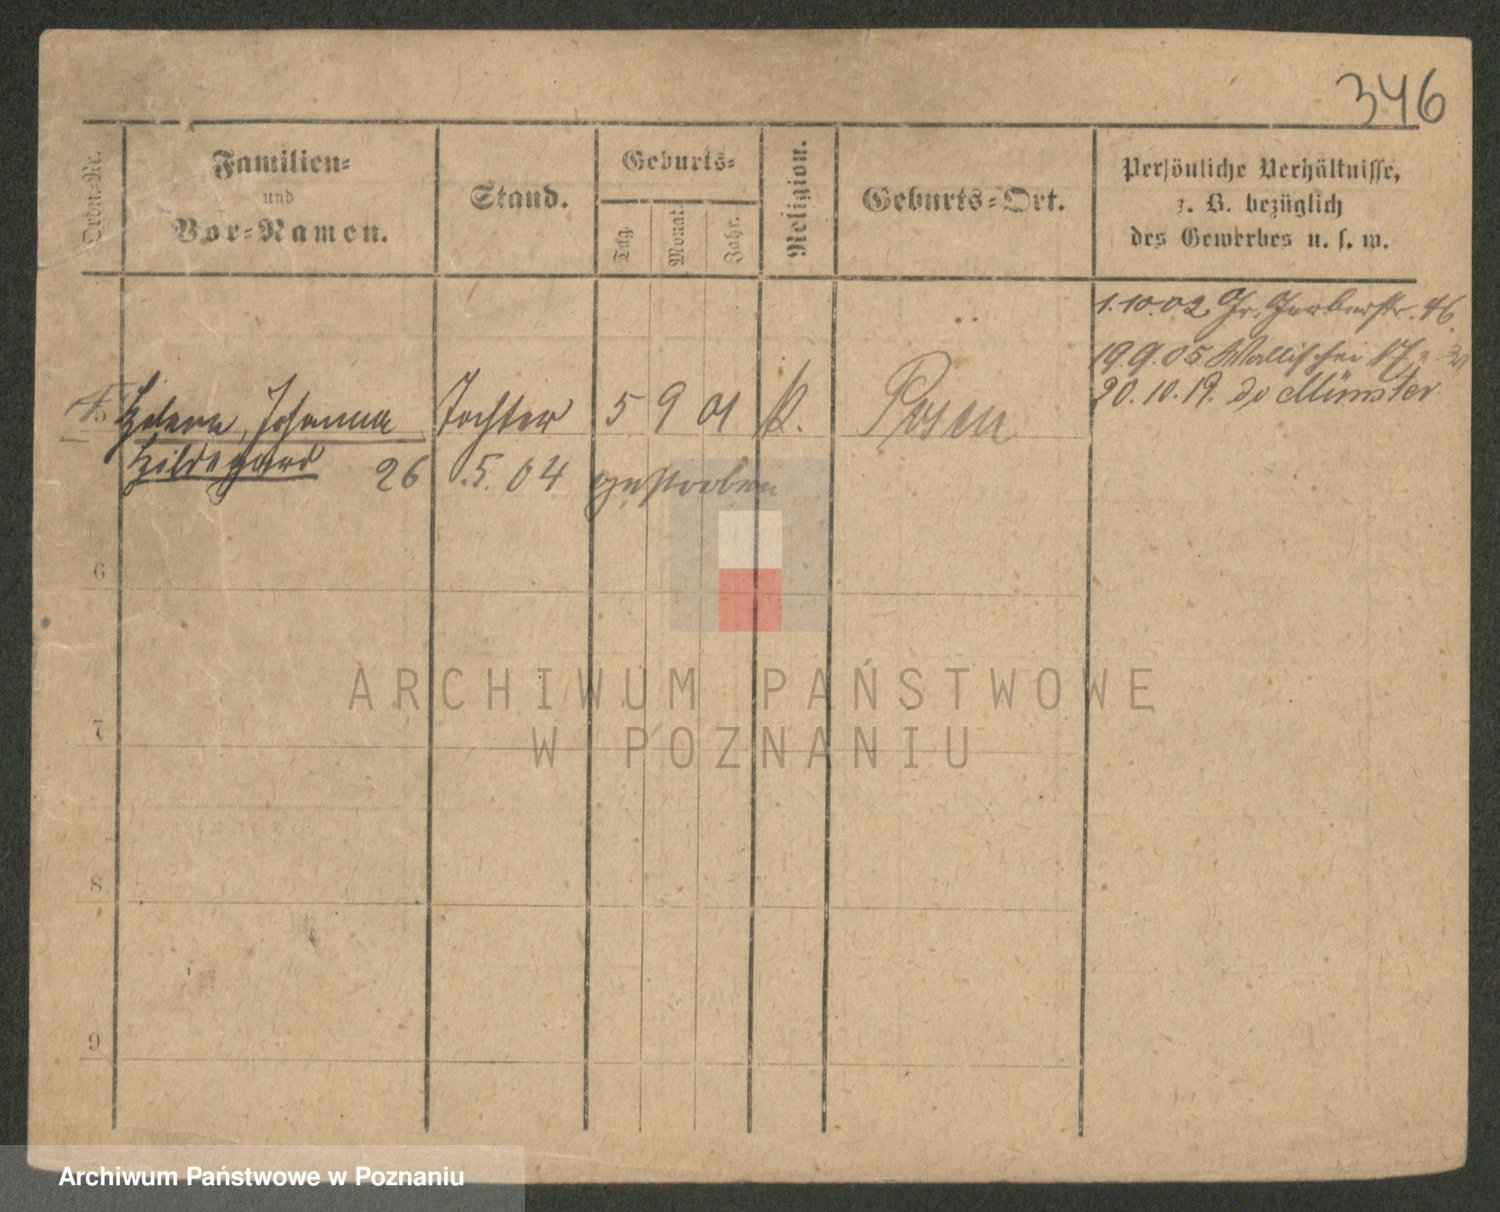 346
Ordn.-Nr.
Familien-
und
Vor-Namen.
Stand.
Geburts-
Tag.
Monat.
Jahr.
Religion.
Geburts-Ort.
Persönliche Verhältnisse,
z. B. bezüglich
des Gewerbes u. s. w.
1.10.02 Gr. Gerberstr. 46.
19.9.05 Wallischei 17
20.10.19. do Münster
5 Helene, Johanna Tochter 5 9 01 k. Posen
Hildegard 26.5.04 gestorben
6
7
8
9
ARCHIWUM PAŃSTWOWE
W POZNANIU
Archiwum Państwowe w Poznaniu